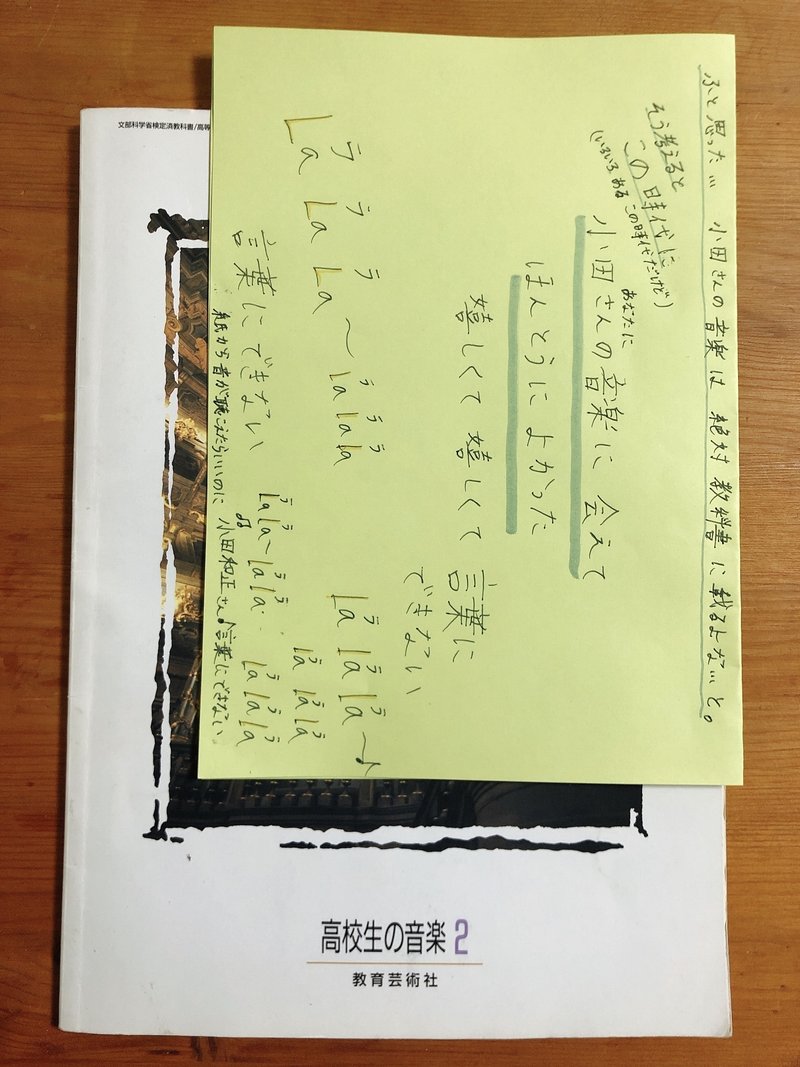 ふと思った… 小田さんの音楽は絶対教科書に載るよな…と。
そう考えると
この時代に
(いろいろある この時代だけど)
あなたに
小田さんの音楽に会えて
ほんとうによかった
嬉しくて 嬉しくて
言葉に
できない
ラ ラ ラ ラ ラ ラ
La La La～ La La La
ラ ラ ラ
La La La～♪
言葉にできない
ラ ラ ラ ラ
La La～ La La
ラ ラ ラ
La La La
ラ ラ ラ
La La La
紙から音が聴こえたらいいのに
小田和正さん♪言葉にできない
文部科学省検定済教科書/高等
高校生の音楽 2
教育芸術社